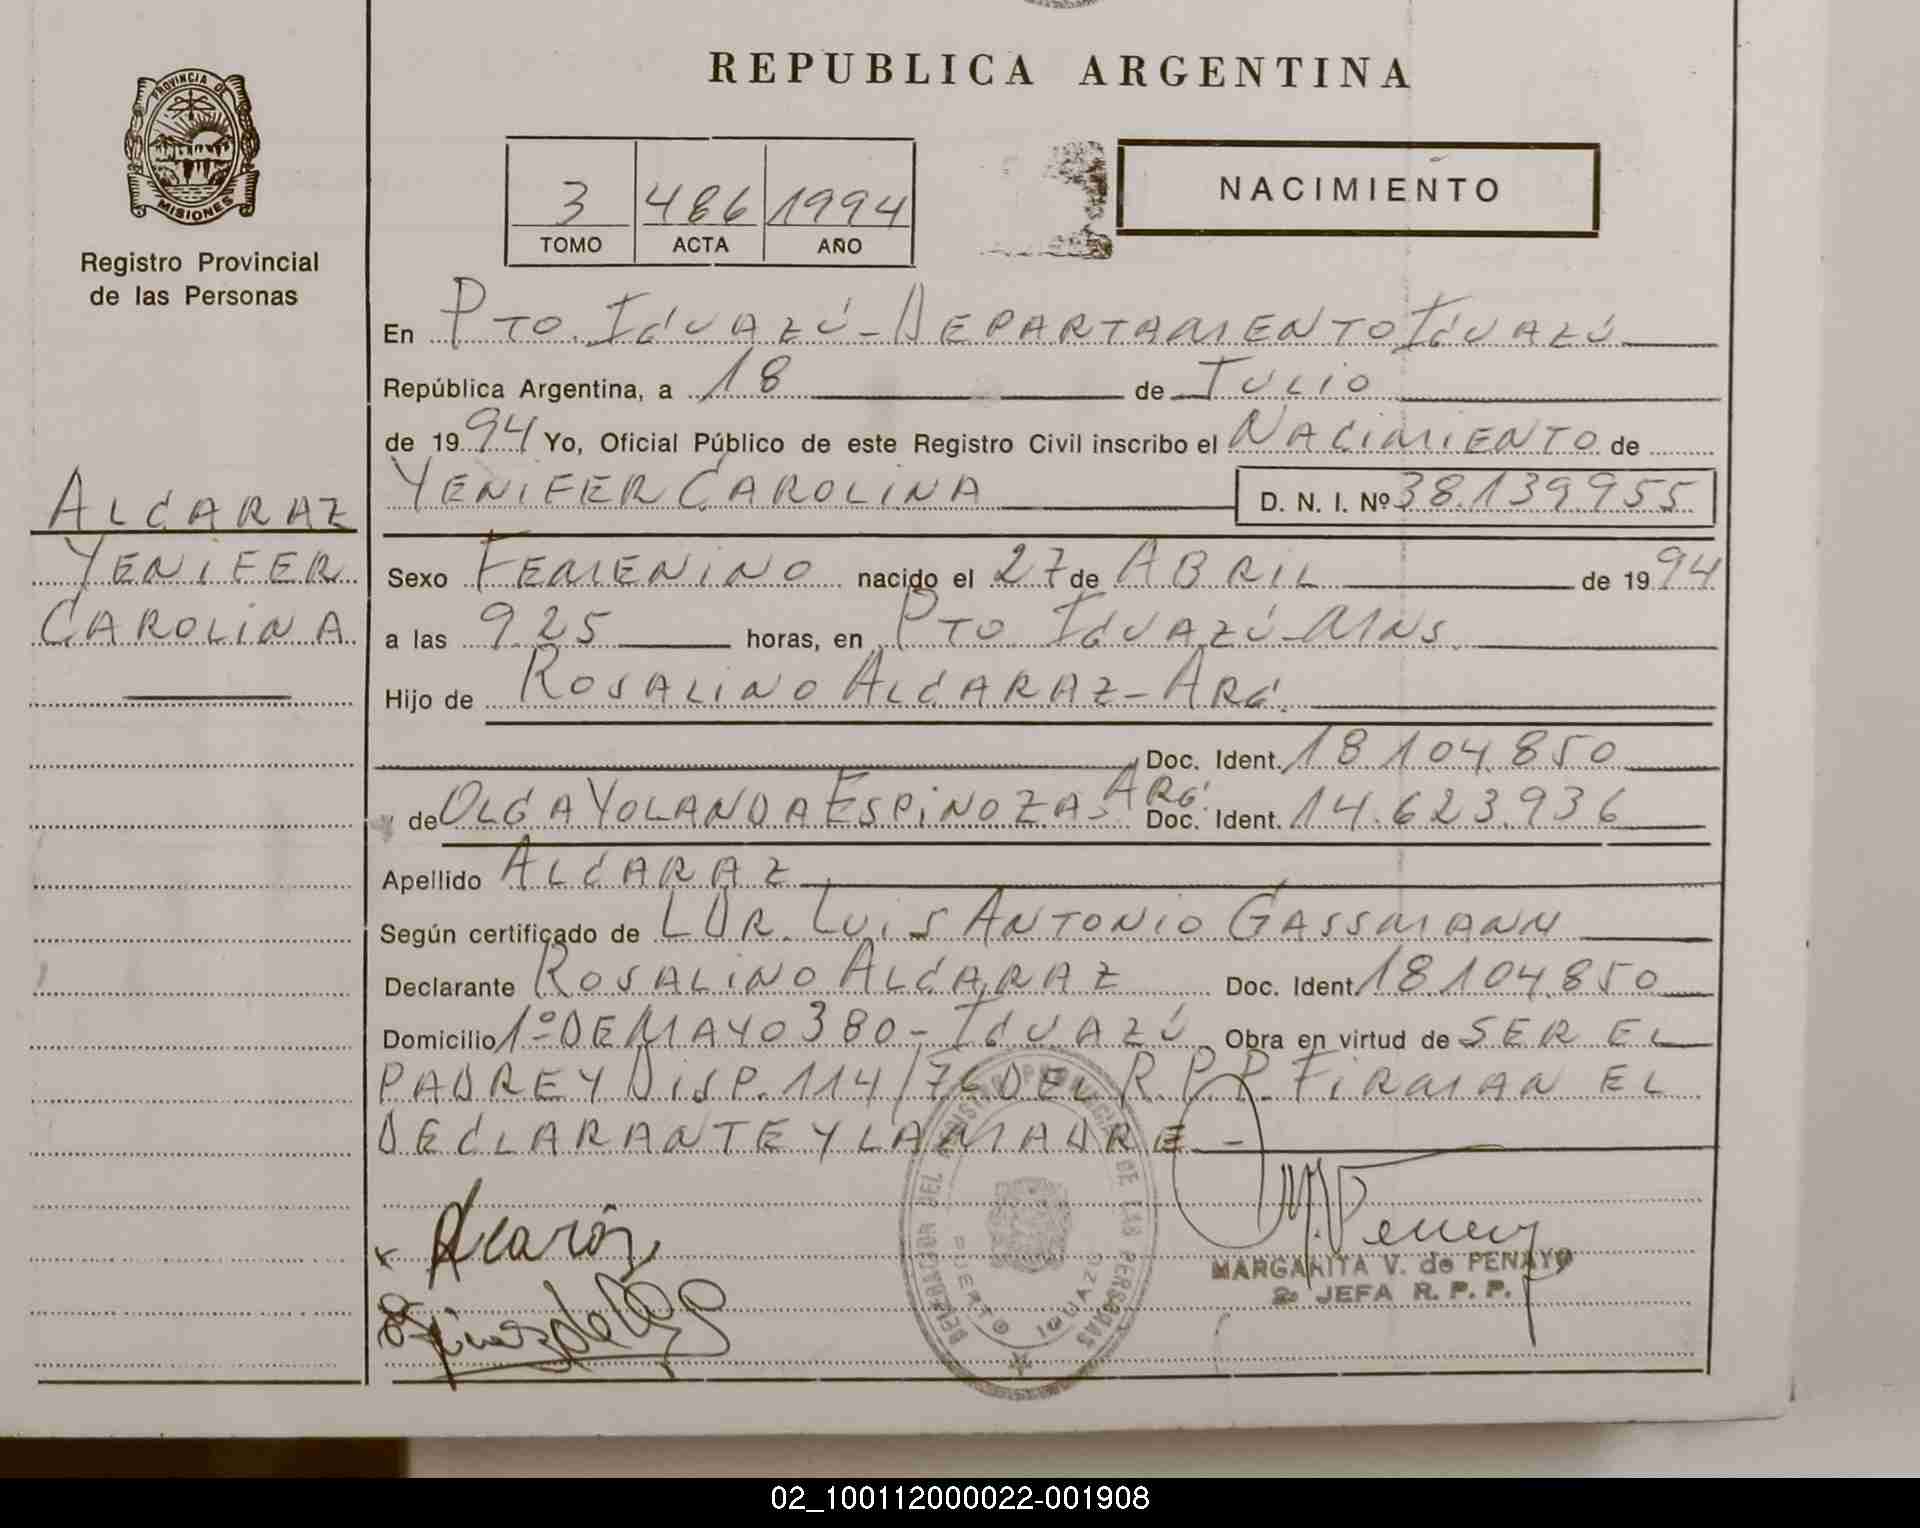 REPUBLICA ARGENTINA
PROVINCIA DE
MISIONES
Registro Provincial
de las Personas
3 486 1994
TOMO ACTA AÑO
NACIMIENTO
En PTO. IGUAZÚ - DEPARTAMENTO IGUAZÚ
República Argentina, a 18 de JULIO
de 1994 Yo, Oficial Público de este Registro Civil inscribo el NACIMIENTO de
YENIFER CAROLINA D. N. I. Nº 38.139.955
ALCARAZ
YENIFER
CAROLINA
Sexo FEMENINO nacido el 27 de ABRIL de 1994
a las 9 25 horas, en PTO. IGUAZÚ - MNS.
Hijo de ROSALINO ALCARAZ - ARG.
Doc. Ident. 18.104.850
y de OLGA YOLANDA ESPINOZA - ARG. Doc. Ident. 14.623.936
Apellido ALCARAZ
Según certificado de DR. LUIS ANTONIO GASSMANN
Declarante ROSALINO ALCARAZ Doc. Ident. 18.104.850
Domicilio 1º DE MAYO 380 - IGUAZÚ Obra en virtud de SER EL
PADRE Y DISP. 114/76 DEL R.P.P. FIRMAN EL
DECLARANTE Y LA MADRE -
PUERTO IGUAZU
MARGARITA V. de PENAYO
2º JEFA R. P. P.
02_100112000022-001908